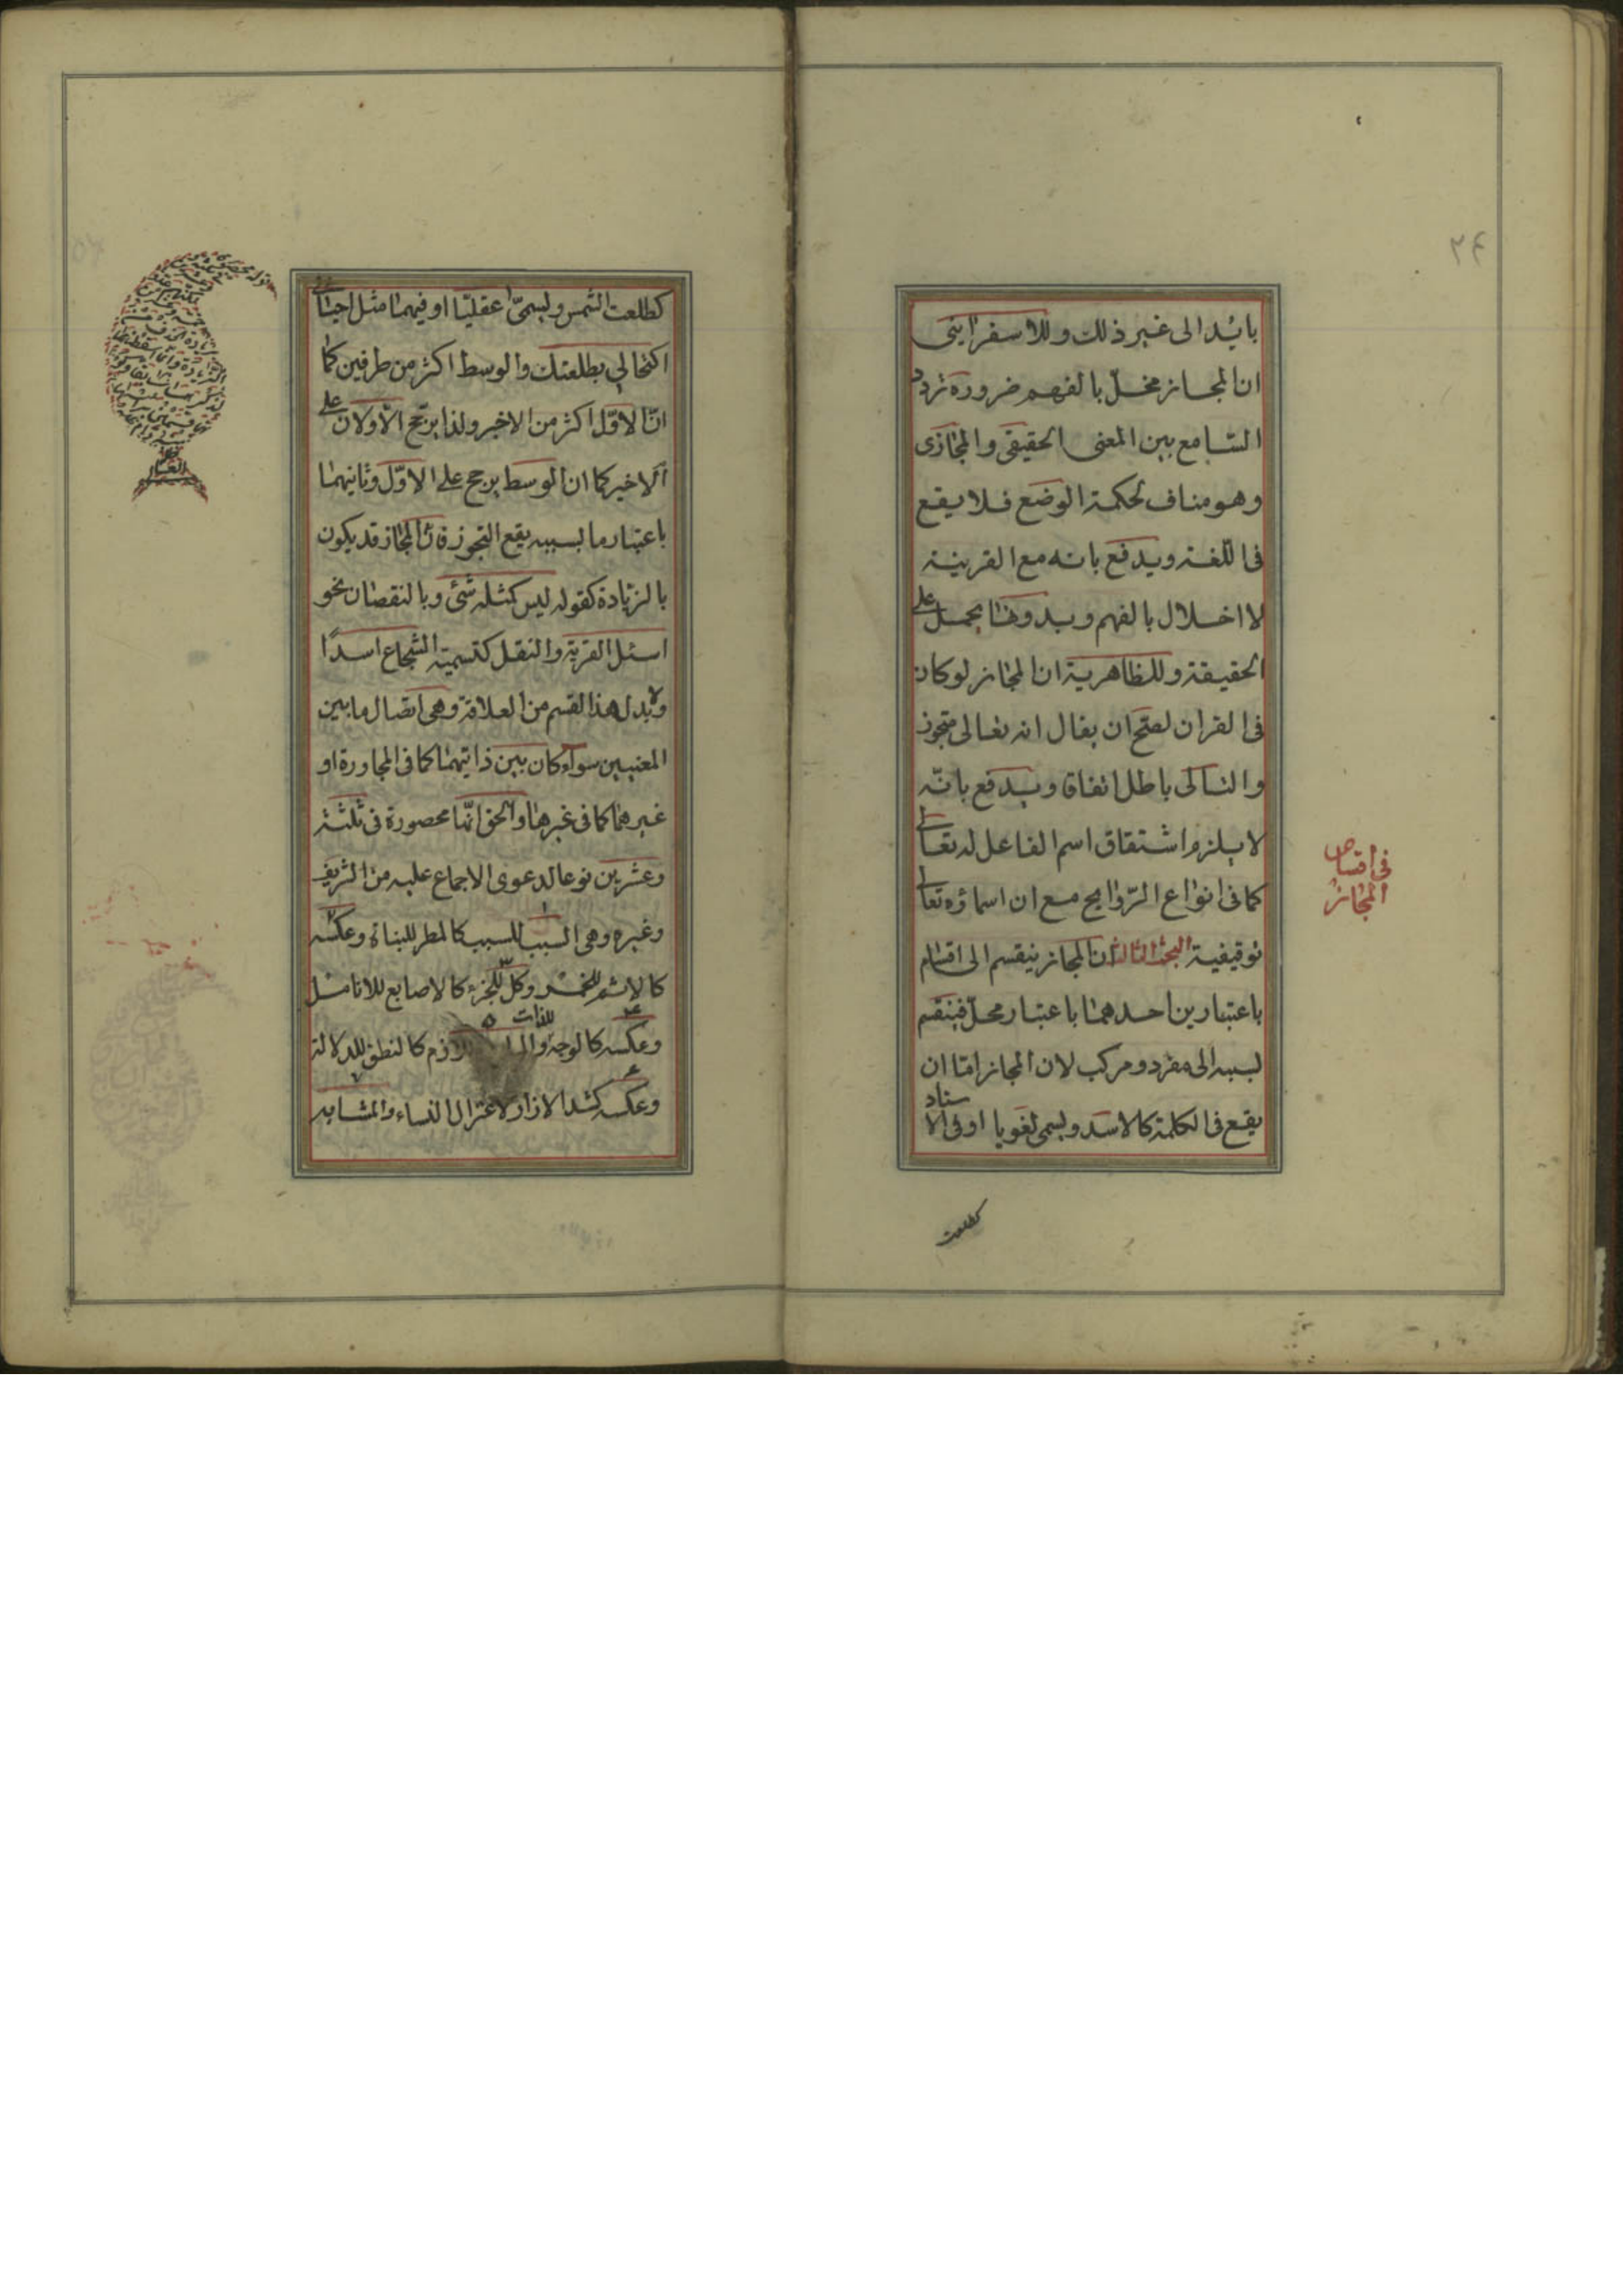 ٢۴
بايد الى غير ذلك وللاسفراينى
ان المجاز مخلّ بالفهم ضرورة تردد
السّامع بين المعنى الحقيقى والمجازى
وهو مناف لحكمة الوضع فلا يقع
فى اللّغة ويدفع بانه مع القرينة
لا اخلال بالفهم وبدونها يحمل على
الحقيقة وللظاهرية ان المجاز لو كان
فى القران لصحّ ان يقال انه تعالى متجوز
والتالى باطل اتفاقا ويدفع بانّه
لا يلزم اشتقاق اسم الفاعل له تعالى
كما فى انواع الرّوايح مع ان اسماؤه تعالى
توقيفية البحث الثالث ان المجاز ينقسم الى اقسام
باعتبارين احدهما باعتبار محلّ فينقسم
بسببه الى مفرد ومركب لان المجاز امّا ان
يقع فى الكلمة كالاسد ويسمى لغويا او فى الاسناد
فى اقسام
المجاز
كطلعت
كطلعت الشمس ويسمىّ عقليّا او فيهما مثل احيانى
اكتحالى بطلعتك والوسط اكثر من طرفين كما
انّ الاوّل اكثر من الاخير ولذا يرجّح الاولان على
الاخير كما ان الوسط يرجح على الاوّل وثانيهما
باعتبار ما بسببه يقع التجوز فانّ المجاز قد يكون
بالزيادة كقوله ليس كمثله شئ وبالنقصان نحو
اسئل القرية والنقل كتسمية الشجاع اسدًا
ولابد لهذا القسم من العلاقة وهى اتصال ما بين
المعنيين سواء كان بين ذاتيهما كما فى المجاورة او
غيرهما كما فى غيرها والحق انّها محصورة فى ثلثة
وعشرين نوعا لدعوى الاجماع عليه من الشريف
وغيره وهى السبب للسبب كالمطر للنبات وعكسه
كالاثم للخمر وكل للجزء كالاصابع للانامل
وعكسه كالوجه للذات والملزوم للازم كالنطق للدلالة
وعكسه كشد الازار لاعتزال النساء والمشابه